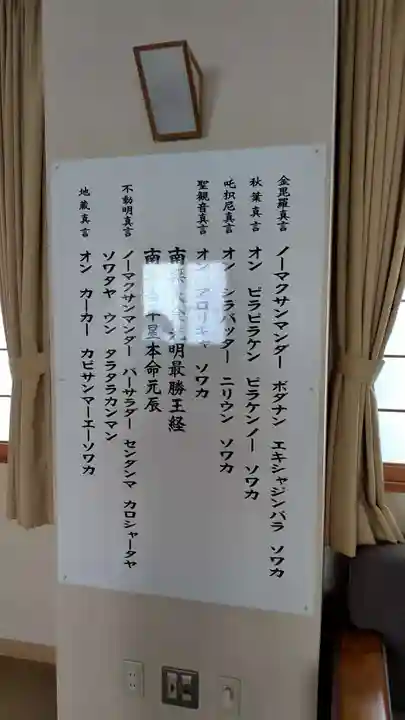 金毘羅真言 ノーマクサンマンダー ボダナン エキシャジンバラ ソワカ
秋葉真言 オン ビラビラケン ビラケンノー ソワカ
吒枳尼真言 オン シラバッター ニリウン ソワカ
聖観音真言 オン アロリキャ ソワカ
南無 光明最勝王経
南 星本命元辰
不動明真言 ノーマクサンマンダー バーサラダー センダンマ カロシャータヤ
ソワタヤ ウン タラタラカンマン
地蔵真言 オン カーカー カビサンマーエーソワカ